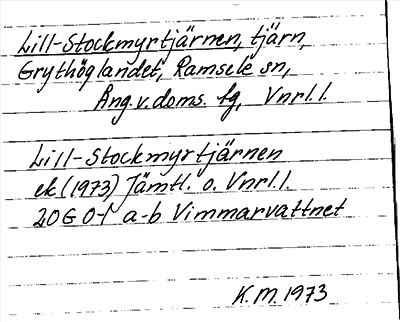 Lill-Stockmyrtjärnen, tjärn,
Grythöglandet, Ramsele sn,
Ång.v.doms. fg, Vnrl.l.
Lill-Stockmyrtjärnen
ek (1973) Jämtl. o. Vnrl.l.
20G 0-1 a-b Vimmarvattnet
K.M. 1973